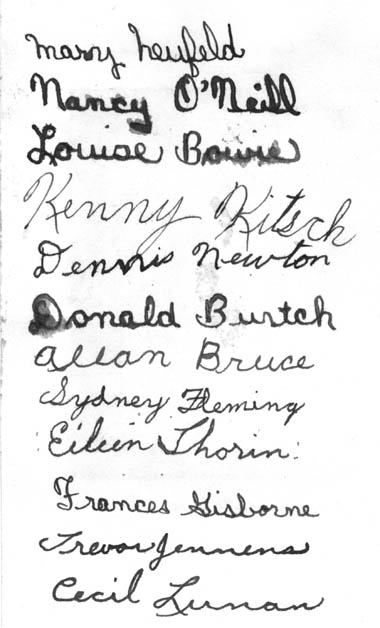 Mary Neufeld
Nancy O'Neill
Louise Bowie
Kenny Kitsch
Dennis Newton
Donald Burtch
Allan Bruce
Sydney Fleming
Eileen Thorin
Frances Gisborne
Trevor Jennens
Cecil Lunan